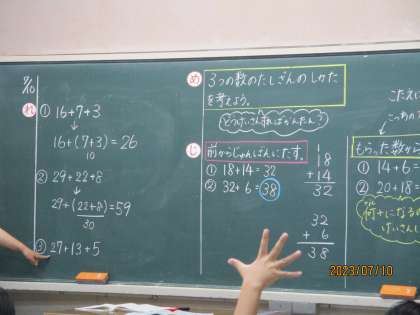 7/10
れ ① 16+7+3
16+(7+3)=26
10
② 29+22+8
29+(22+8)=59
30
③ 27+13+5
め 3つの数のたしざんのしかた
を考えよう。
どうけいさんすればかんたん?
じ 前からじゅんばんにたす。
① 18+14=32
② 32+6=38
18
+14
32
32
+ 6
38
こたえ
もらった数から
① 14+6=
② 20+18
何十になる
けいさんし
2023/07/10